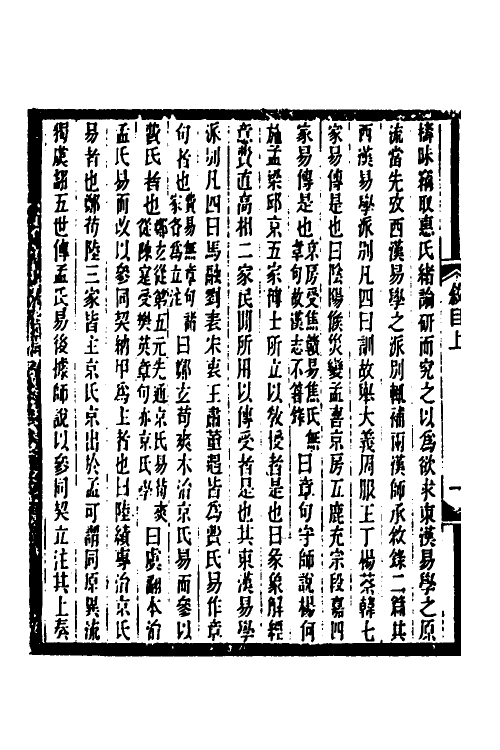 檮昧竊取惠氏緒論研而究之以爲欲求東漢易學之原
流當先攷西漢易學之派別輒補兩漢師承敘錄二篇其
西漢易學派別凡四曰訓故舉大義周服王丁楊蔡韓七
家易傳是也曰陰陽候災變孟喜京房五鹿充宗段嘉四
家易傳是也京房受焦延壽易焦氏無章句故漢志不著錄曰章句守師說楊何
施孟梁邱京五家博士所立以敎授者是也曰彖象解經
意費直高相二家民閒所用以傳受者是也其東漢易學
派別凡四曰馬融劉表宋衷王肅董遇皆爲費氏易作章
句者也費易無章句諸家各爲立注曰鄭玄荀爽本治京氏易而參以
費氏者也鄭玄從第五元先通京氏易荀爽從陳寔受樊英章句亦京氏學曰虞翻本治
孟氏易而改以參同契納甲爲上者也曰陸績專治京氏
易者也鄭荀陸三家皆主京氏京出於孟可謂同原異流
獨虞翻五世傳孟氏易後據師說以參同契立注其上奏
錄目上
一